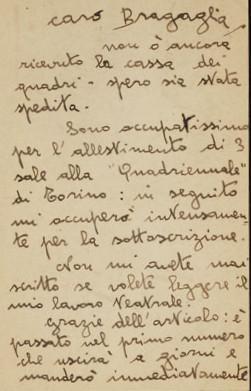 caro Bragaglia,
non ò ancora
ricevuto la cassa dei
quadri - spero sia stata
spedita.
Sono occupatissimo
per l'allestimento di 3
sale alla "Quadriennale"
di Torino: in seguito
mi occuperò intensamen-
te per la sottoscrizione.
Non mi avete mai
scritto se volete leggere il
mio lavoro teatrale.
Grazie dell'articolo: è
passato nel primo numero
che uscirà a giorni e
manderò immediatamente